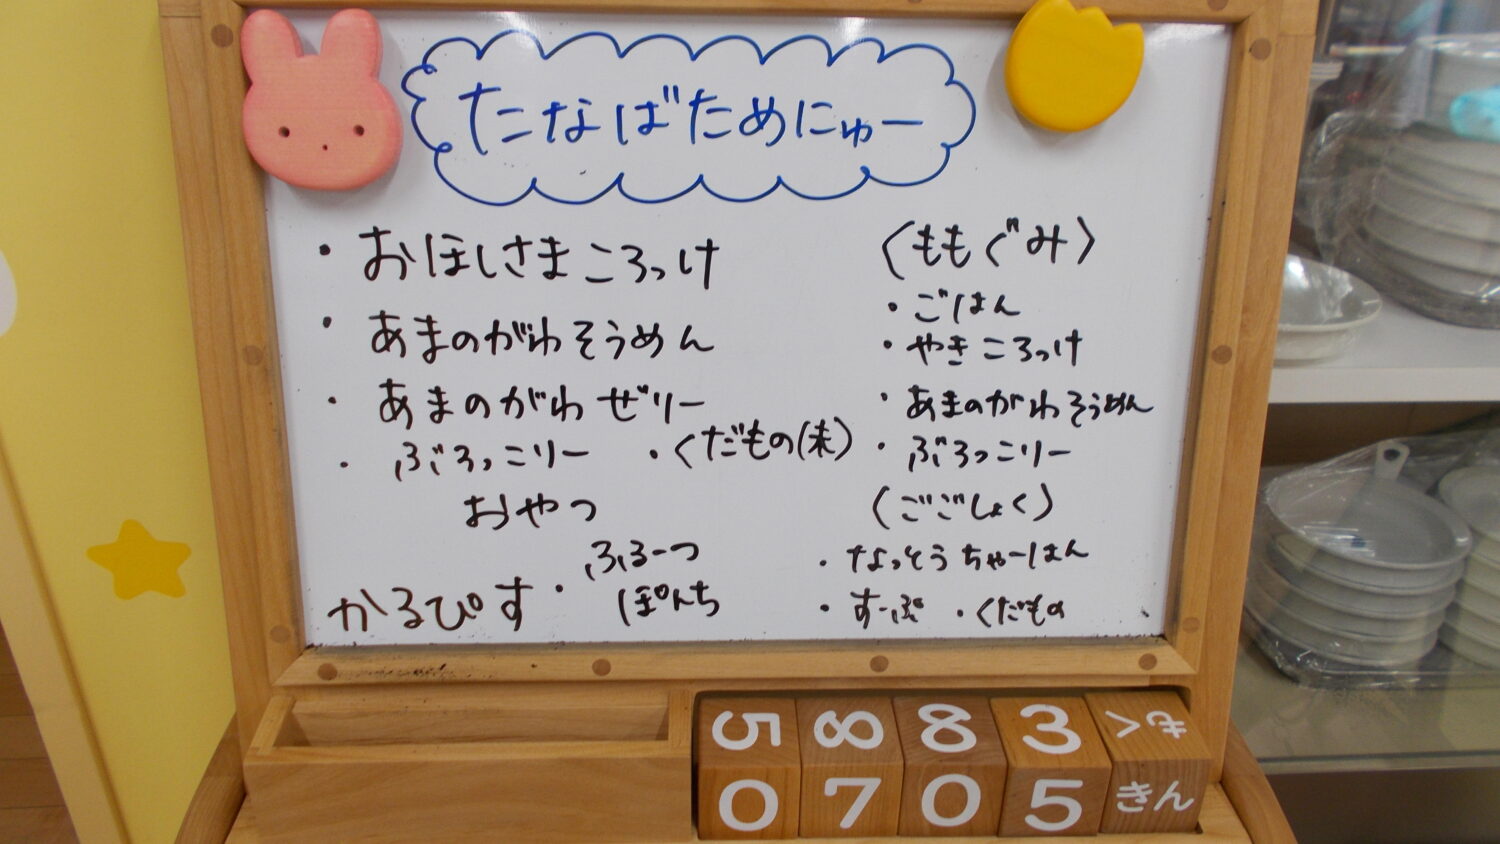 たなばためにゅー
・おほしさまころっけ
・あまのがわそうめん
・あまのがわぜリー
・ぶろっこリー ・くだもの(未)
おやつ
かるぴす・ふるーつ
ぽんち
〈ももぐみ〉
・ごはん
・やきころっけ
・あまのがわそうめん
・ぶろっこリー
〈ごごしょく〉
・なっとうちゃーはん
・すーぷ ・くだもの
5 8 8 3 もく
0 7 0 5 きん